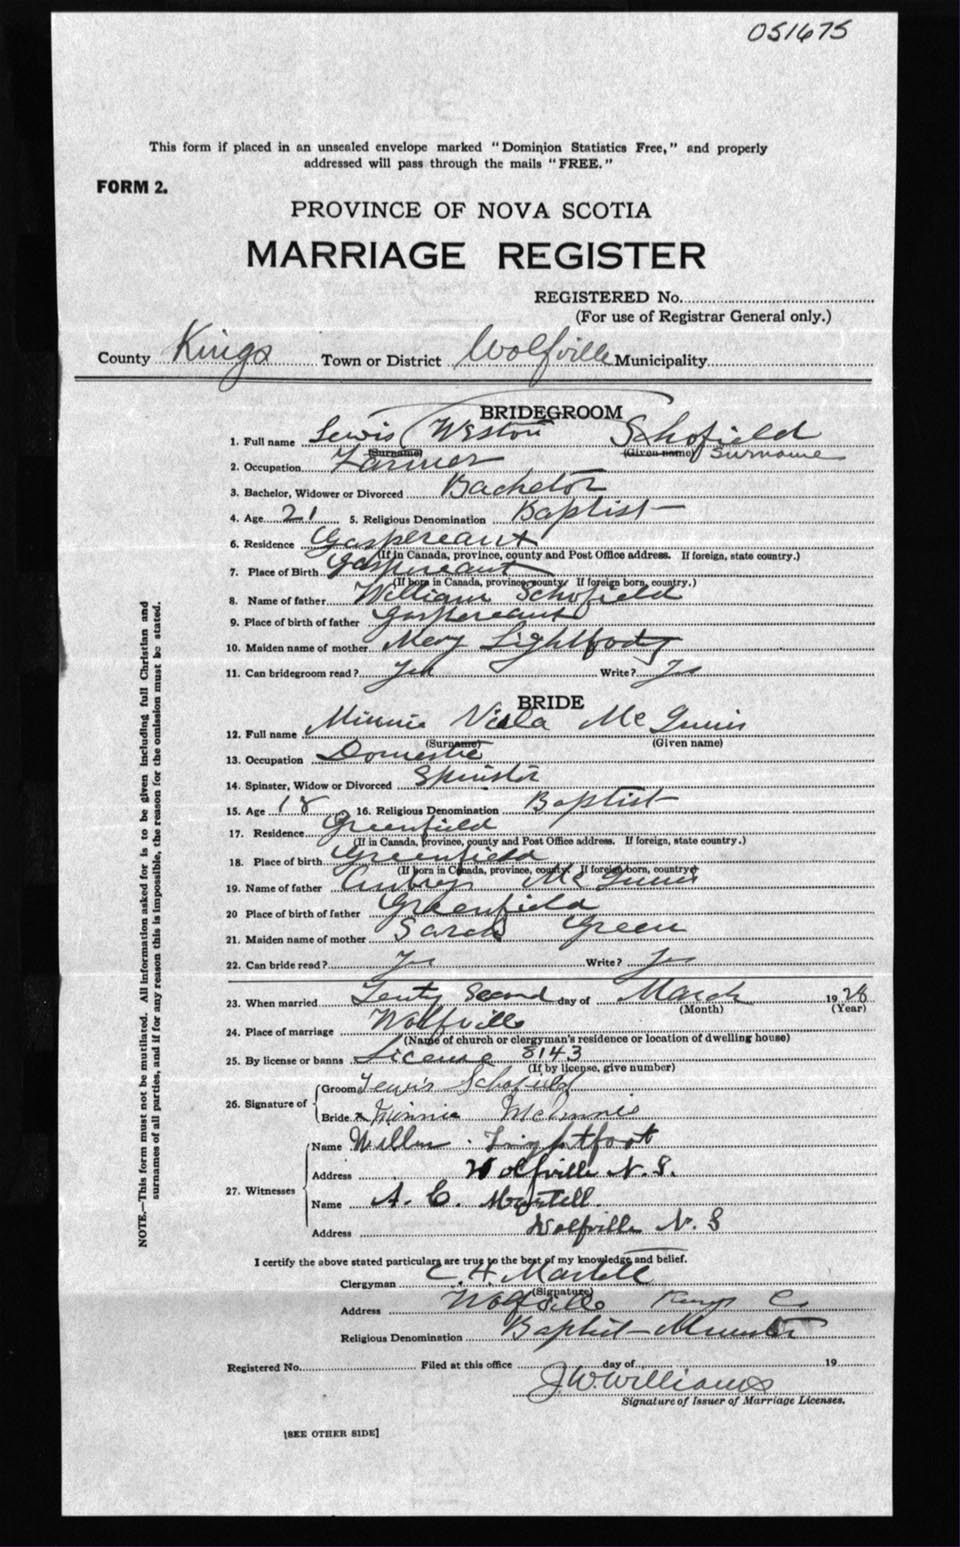 051675
This form if placed in an unsealed envelope marked "Dominion Statistics Free," and properly
addressed will pass through the mails "FREE."
FORM 2.
PROVINCE OF NOVA SCOTIA
MARRIAGE REGISTER
REGISTERED No.
(For use of Registrar General only.)
County Kings Town or District Wolfville Municipality
BRIDEGROOM
1. Full name Lewis Weston Schofield
(Surname) (Given name) Surname
2. Occupation Farmer
3. Bachelor, Widower or Divorced Bachelor
4. Age 21 5. Religious Denomination Baptist
6. Residence Gaspereaux
(If in Canada, province, county and Post Office address. If foreign, state country.)
7. Place of Birth Gaspereaux
(If born in Canada, province, county. If foreign born, country.)
8. Name of father William Schofield
9. Place of birth of father Gaspereaux
10. Maiden name of mother Mery Lightfoody
11. Can bridegroom read? Yes Write? Yes
BRIDE
12. Full name Minnie Viola McGinnis
(Surname) (Given name)
13. Occupation Domestic
14. Spinster, Widow or Divorced Spinster
15. Age 18 16. Religious Denomination Baptist
17. Residence Greenfield
(If in Canada, province, county and Post Office address. If foreign, state country.)
18. Place of birth Greenfield
(If born in Canada, province, county. If foreign born, country)
19. Name of father Aubrey McGinnis
20 Place of birth of father Greenfield
21. Maiden name of mother Sarah Green
22. Can bride read? Yes Write? Yes
23. When married Tenty Second day of March 1928
(Month) (Year)
24. Place of marriage Wolfville
(Name of church or clergyman's residence or location of dwelling house)
25. By license or banns License 8143
(If by license, give number)
26. Signature of Groom Lewis Schofield
Bride x Minnie McGinnis
27. Witnesses Name Lightfoot
Address Wolfville N. S.
Name A. C. Martell.
Address Wolfville N. S
I certify the above stated particulars are true to the best of my knowledge and belief.
Clergyman C. H. Martell
(Signature)
Address Wolfville Kings Co
Religious Denomination Baptist Minister
Registered No. Filed at this office day of 19
J.W. Williams
Signature of Issuer of Marriage Licenses.
[SEE OTHER SIDE]
NOTE.—This form must not be mutilated. All information asked for is to be given including full Christian and
surnames of all parties, and if for any reason this is impossible, the reason for the omission must be stated.